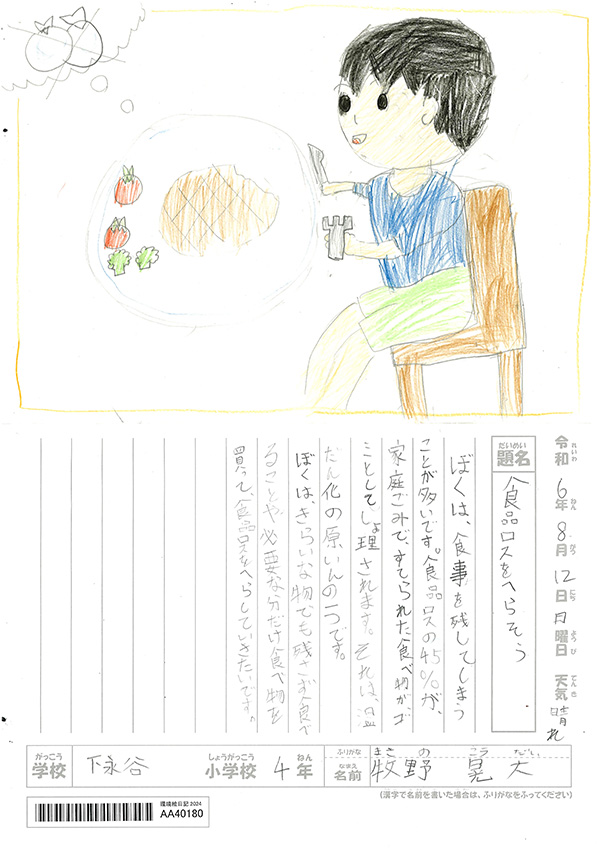 令和6年8月12日月曜日 天気晴れ
れいわ ねん がつ にち ようび てんき
だいめい
題名 食品ロスをへらそう
ぼくは、食事を残してしまう
ことが多いです。食品ロスの45%が、
家庭ごみで、すてられた食べ物が、ゴ
ミとしてしょ理されます。それは、温
だん化の原いんの一つです。
ぼくは、きらいな物でも残さず食べ
ることや必要な分だけ食べ物を
買って、食品ロスをへらしていきたいです。
がっこう しょうがっこう ねん ふりがな まきの こうだい
学校 下永谷 小学校 4年 なまえ 名前 牧野 晃大
(漢字で名前を書いた場合は、ふりがなをふってください)
環境絵日記 2024
AA40180